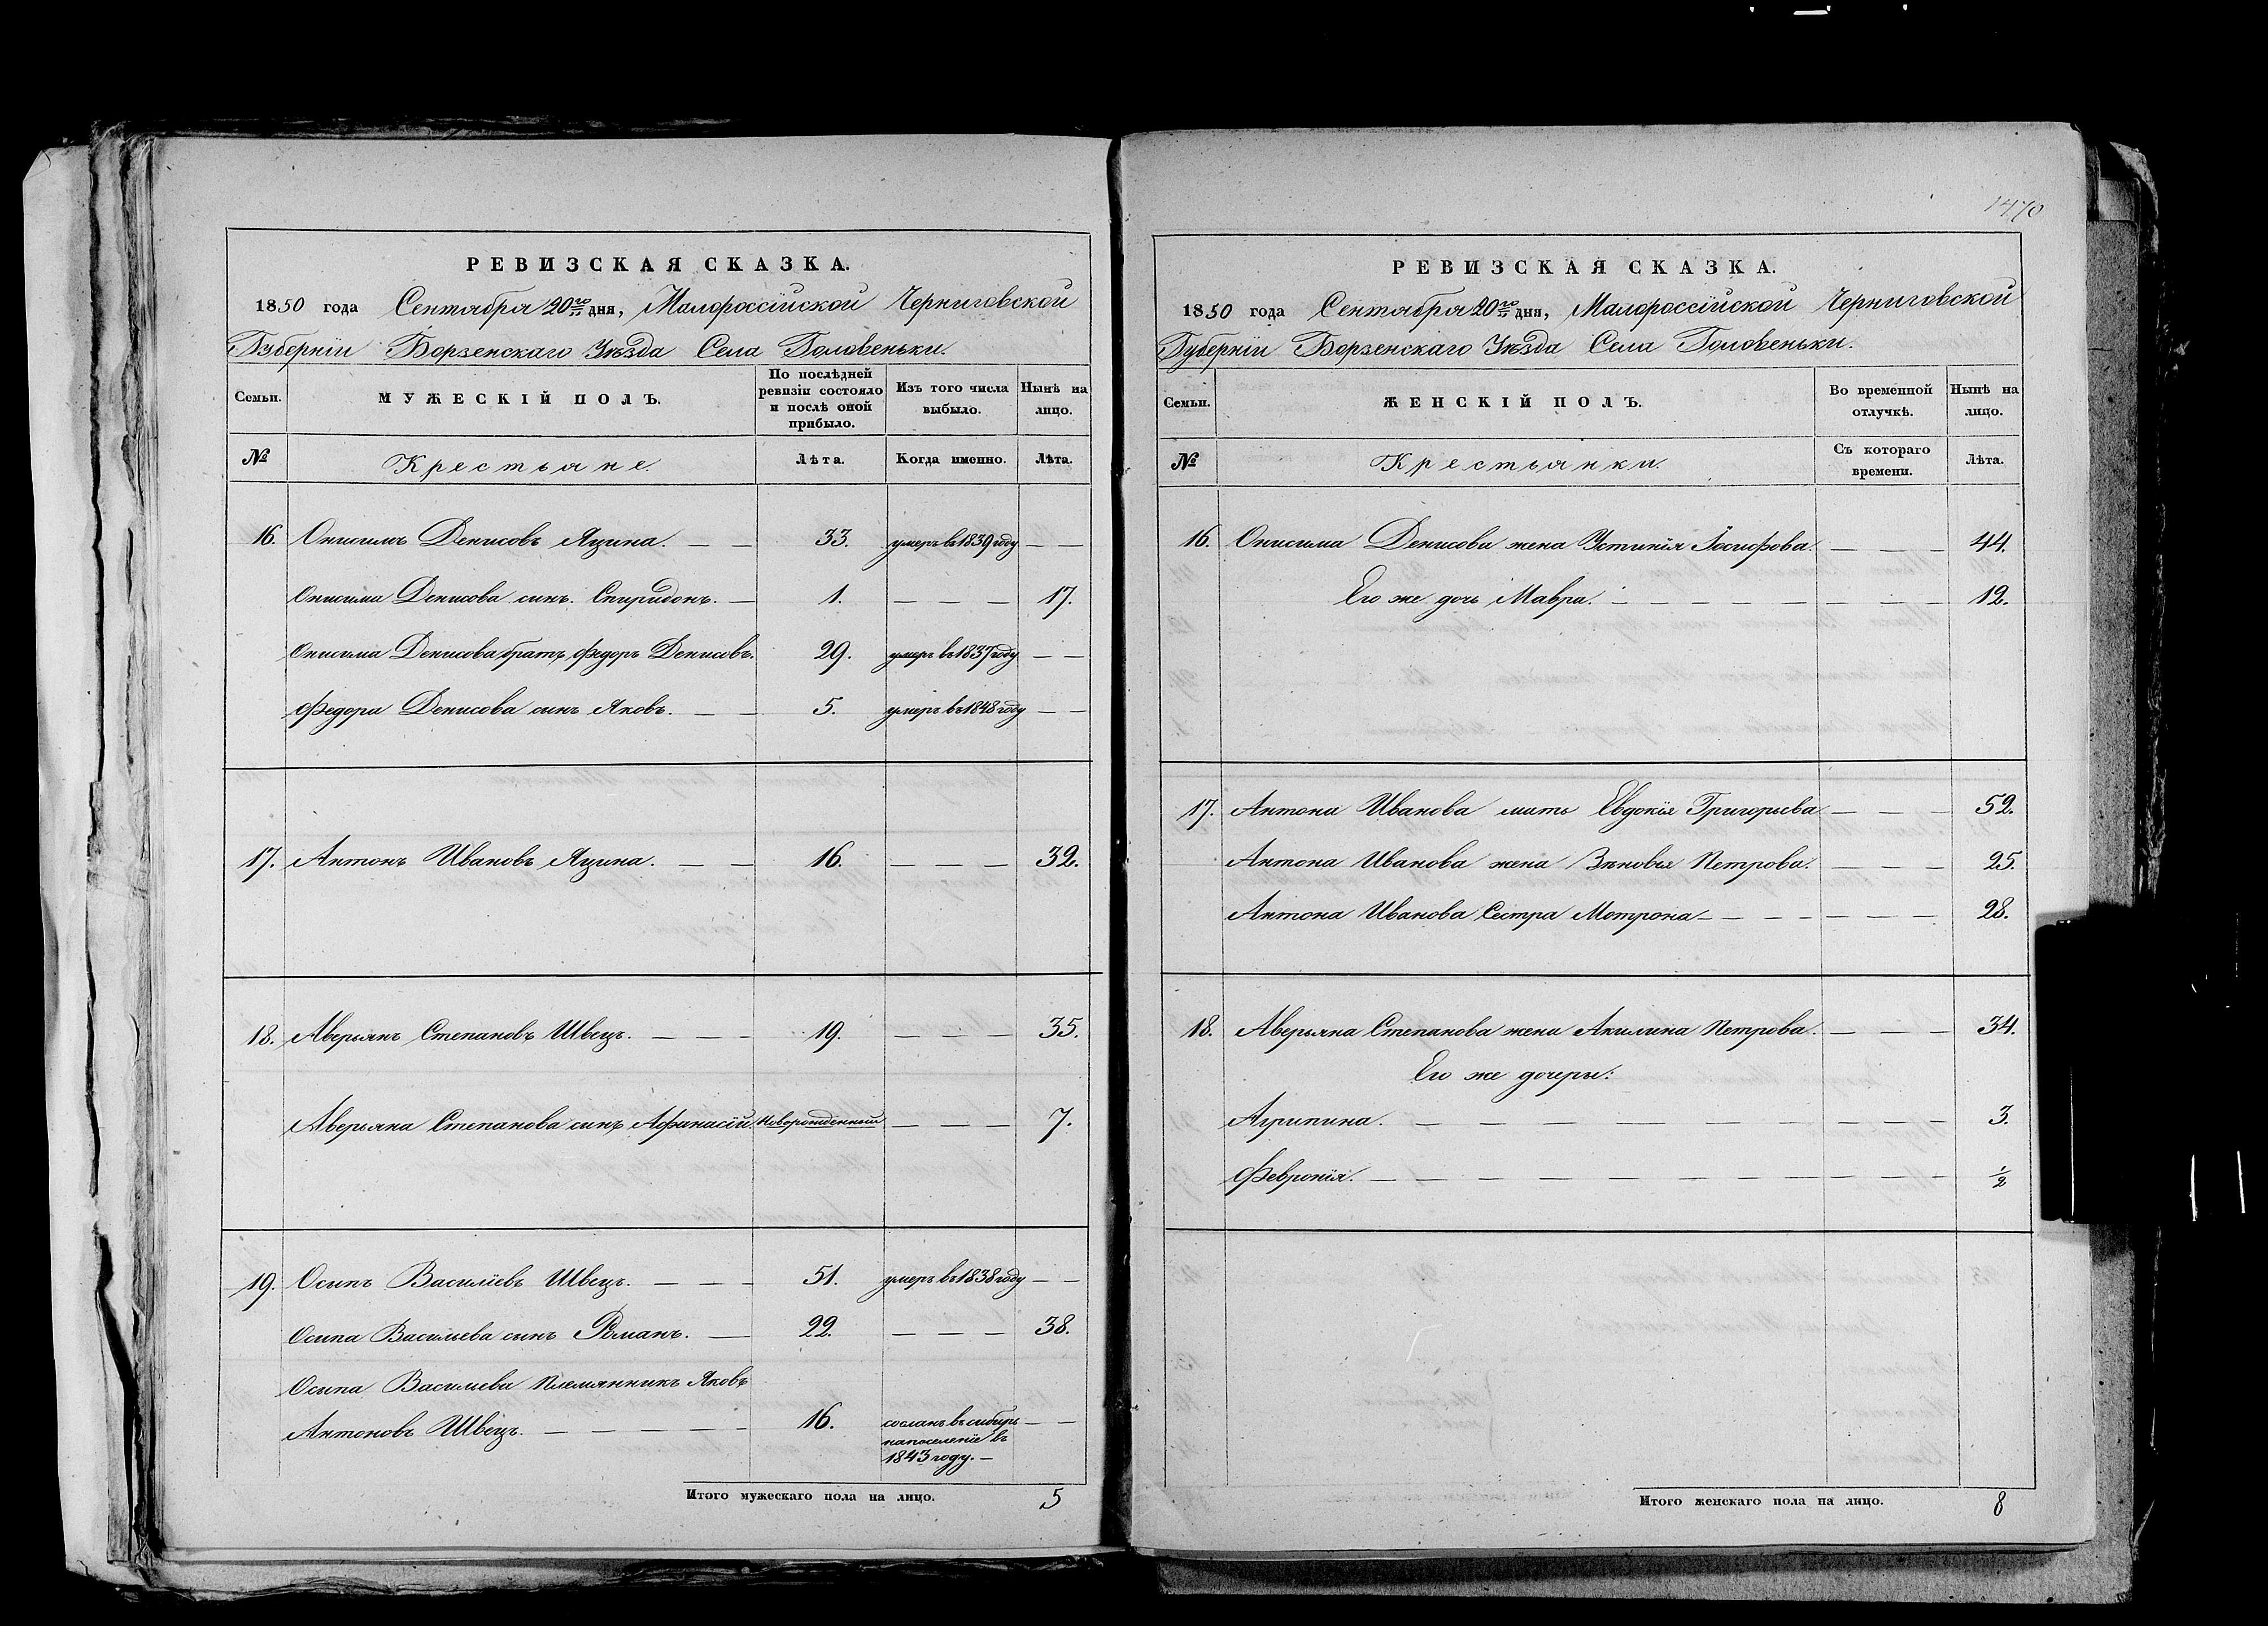 РЕВИЗСКАЯ СКАЗКА.
1850 года Сентября 20го дня, Малороссійской Черниговской
Губерніи Борзенскаго Уѣзда Села Головеньки.
Семьи. МУЖЕСКІЙ ПОЛЪ. По послѣдней ревизіи состояло и послѣ оной прибыло. Изъ того числа выбыло. Нынѣ на лицо.
№ Крестьяне. Лѣта. Когда именно. Лѣта.
16. Онисимъ Денисовъ Яцина. — — 33. умеръ въ 1839 году — —
Онисима Денисова синъ Спиридонъ. — 1. — — — 17.
Онисима Денисова братъ Федоръ Денисовъ. 29. умеръ въ 1837 году — —
Федора Денисова синъ Яковъ. — — 5. умеръ въ 1848 году — —
17. Антонъ Ивановъ Яцина. — — 16. — — — 32.
18. Аверьянъ Степановъ Швецъ. — — — 19. — — — 35.
Аверьяна Степанова синъ Афанасій новорожденный — — — 7.
19. Осипъ Василіевъ Швецъ. — — — 51. умеръ въ 1838 году — —
Осипа Василіева синъ Романъ. — 22. — — — 38.
Осипа Василіева племянникъ Яковъ
Антоновъ Швецъ. — — — — — 16. сосланъ въ сибирь — —
на поселеніе въ
1843 году. —
Итого мужескаго пола на лицо. 5
1470
РЕВИЗСКАЯ СКАЗКА.
1850 года Сентября 20го дня, Малороссійской Черниговской
Губерніи Борзенскаго Уѣзда Села Головеньки.
Семьи. ЖЕНСКІЙ ПОЛЪ. Во временной отлучкѣ. Нынѣ на лицо.
№ Крестьянки. Съ котораго времени. Лѣта.
16. Онисима Денисова жена Устинія Іосифова. — — — 44.
Его же дочь Мавра. — — — — — — — — 12.
17. Антона Иванова мать Евдокія Григорьева — — — 52.
Антона Иванова жена Зѣновья Петрова. — — — 25.
Антона Иванова Сестра Мотрона — — — — — — — 28.
18. Аверьяна Степанова жена Акилина Петрова. — — — 34.
Его же дочери:
Агрипина. — — — — — — — — — — 3.
Февронія. — — — — — — — — — — — ½
Итого женскаго пола на лицо. 8